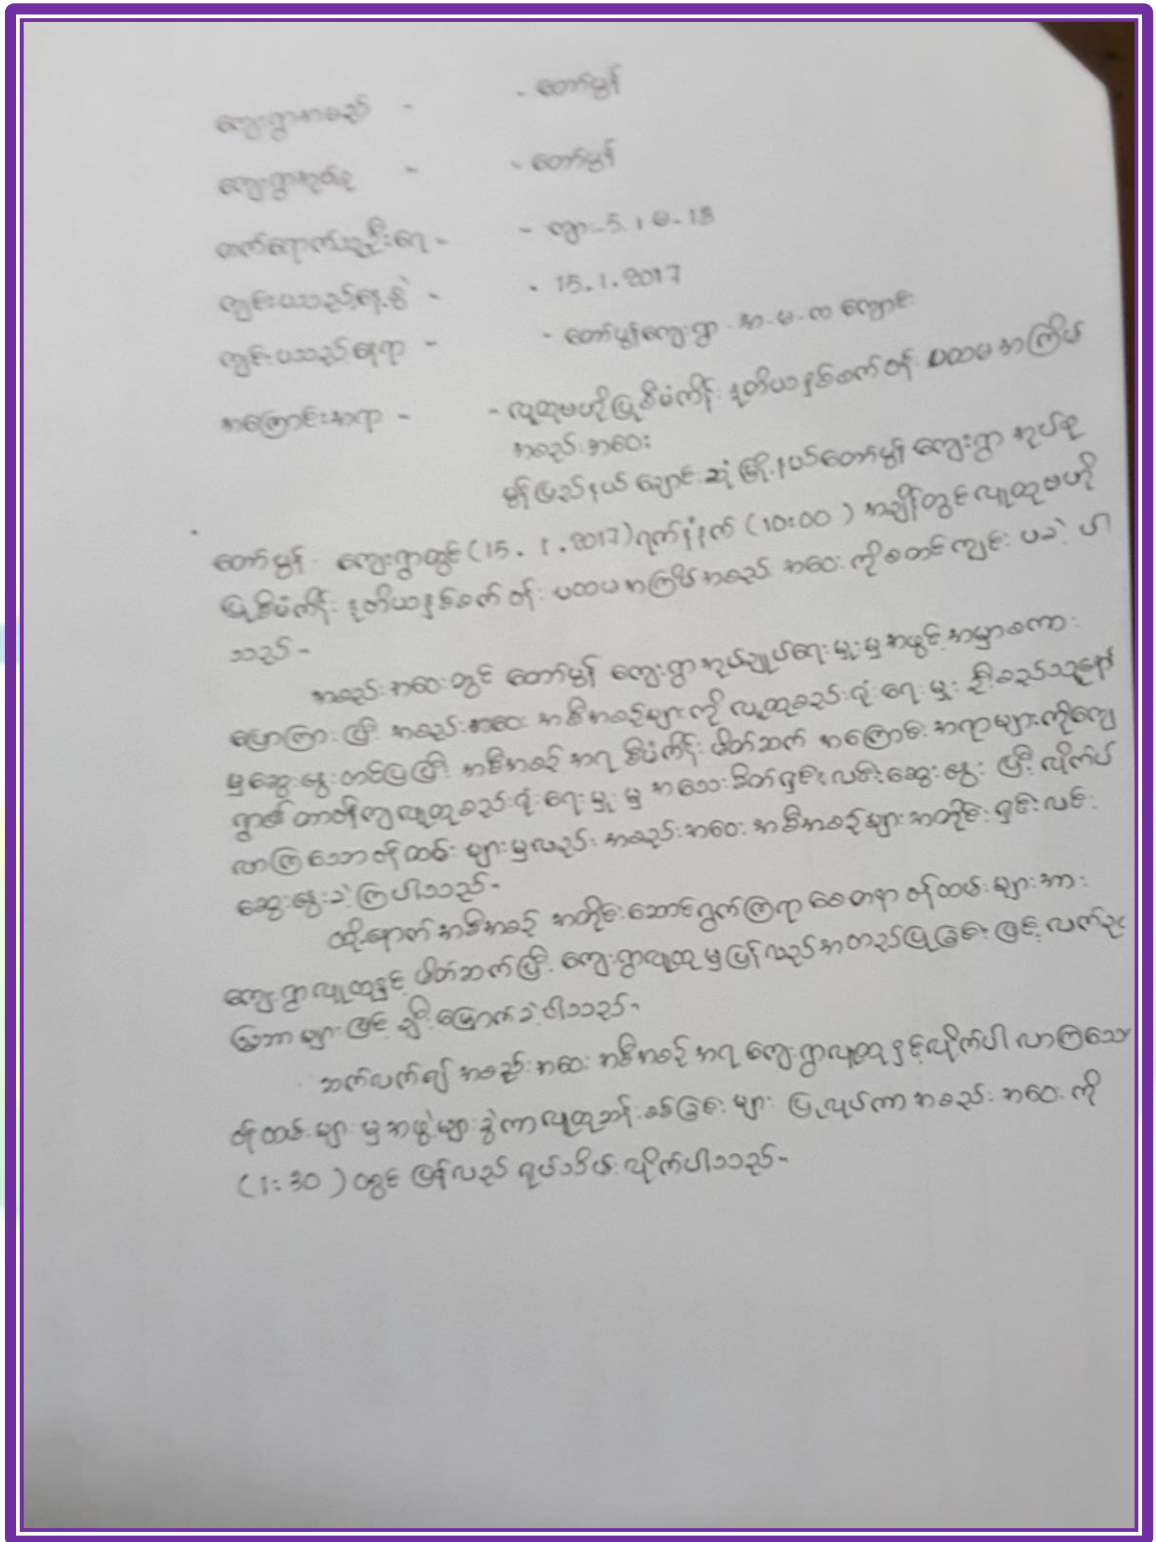 ကျေးရွာအမည် - - တော်မွန်
ကျေးရွာအုပ်စု - - တော်မွန်
တက်ရောက်သူဦးရေ - - ကျား-5၊ မ-18
ကျင်းပသည့်နေ့စွဲ - - 15.1.2017
ကျင်းပသည့်နေရာ - - တော်မွန်ကျေးရွာ အ.မ.က ကျောင်း
အကြောင်းအရာ - - လူထုဗဟိုပြုစီမံကိန်း ဒုတိယနှစ်စက်ဝန်း ပထမအကြိမ်
အစည်းအဝေး
မွန်ပြည်နယ် ချောင်းဆုံမြို့နယ်တော်မွန် ကျေးရွာအုပ်စု
တော်မွန် ကျေးရွာတွင် (15.1.2017) ရက်နံနက် (10:00) အချိန်တွင်လူထုဗဟို
ပြုစီမံကိန်း ဒုတိယနှစ်စက်ဝန်း ပထမအကြိမ်အစည်းအဝေးကိုစတင်ကျင်းပခဲ့ပါ
သည်-
အစည်းအဝေးတွင် တော်မွန် ကျေးရွာအုပ်ချုပ်ရေးမှူးမှအဖွင့်အမှာစကား
ပြောကြားပြီး အစည်းအဝေး အစီအစဉ်များကို လူထုစည်းရုံးရေးမှူး ဦးစည်သူနော်
မှဆွေးနွေးတင်ပြပြီး အစီအစဉ်အရ စီမံကိန်းမိတ်ဆက် အကြောင်းအရာများကိုကျေး
ရွာ၏တာဝန်ကျလူထုစည်းရုံးရေးမှူးမှ အသေးစိတ်ရှင်းလင်းဆွေးနွေးပြီး လိုက်ပါ
လာကြသောဝန်ထမ်းများမှလည်း အစည်းအဝေးအစီအစဉ်များအတိုင်းရှင်းလင်း
ဆွေးနွေးခဲ့ကြပါသည်-
ထို့နောက်အစီအစဉ်အတိုင်းဆောင်ရွက်ကြရာစေတနာ့ဝန်ထမ်းများအား
ကျေးရွာလူထုနှင့်မိတ်ဆက်ပြီး ကျေးရွာလူထုမှပြန်လည်အတည်ပြုခြင်းဖြင့်လက်ခု
ပ်သြဘာများဖြင့်ချီးမြှောက်ခဲ့ပါသည်-
ဆက်လက်၍အစည်းအဝေးအစီအစဉ်အရကျေးရွာလူထုနှင့်လိုက်ပါလာကြသော
ဝန်ထမ်းများမှအဖွဲ့များခွဲကာလူထုဆန်းစစ်ခြင်းများပြုလုပ်ကာအစည်းအဝေးကို
(1:30) တွင်ပြန်လည်ရုပ်သိမ်းလိုက်ပါသည်-